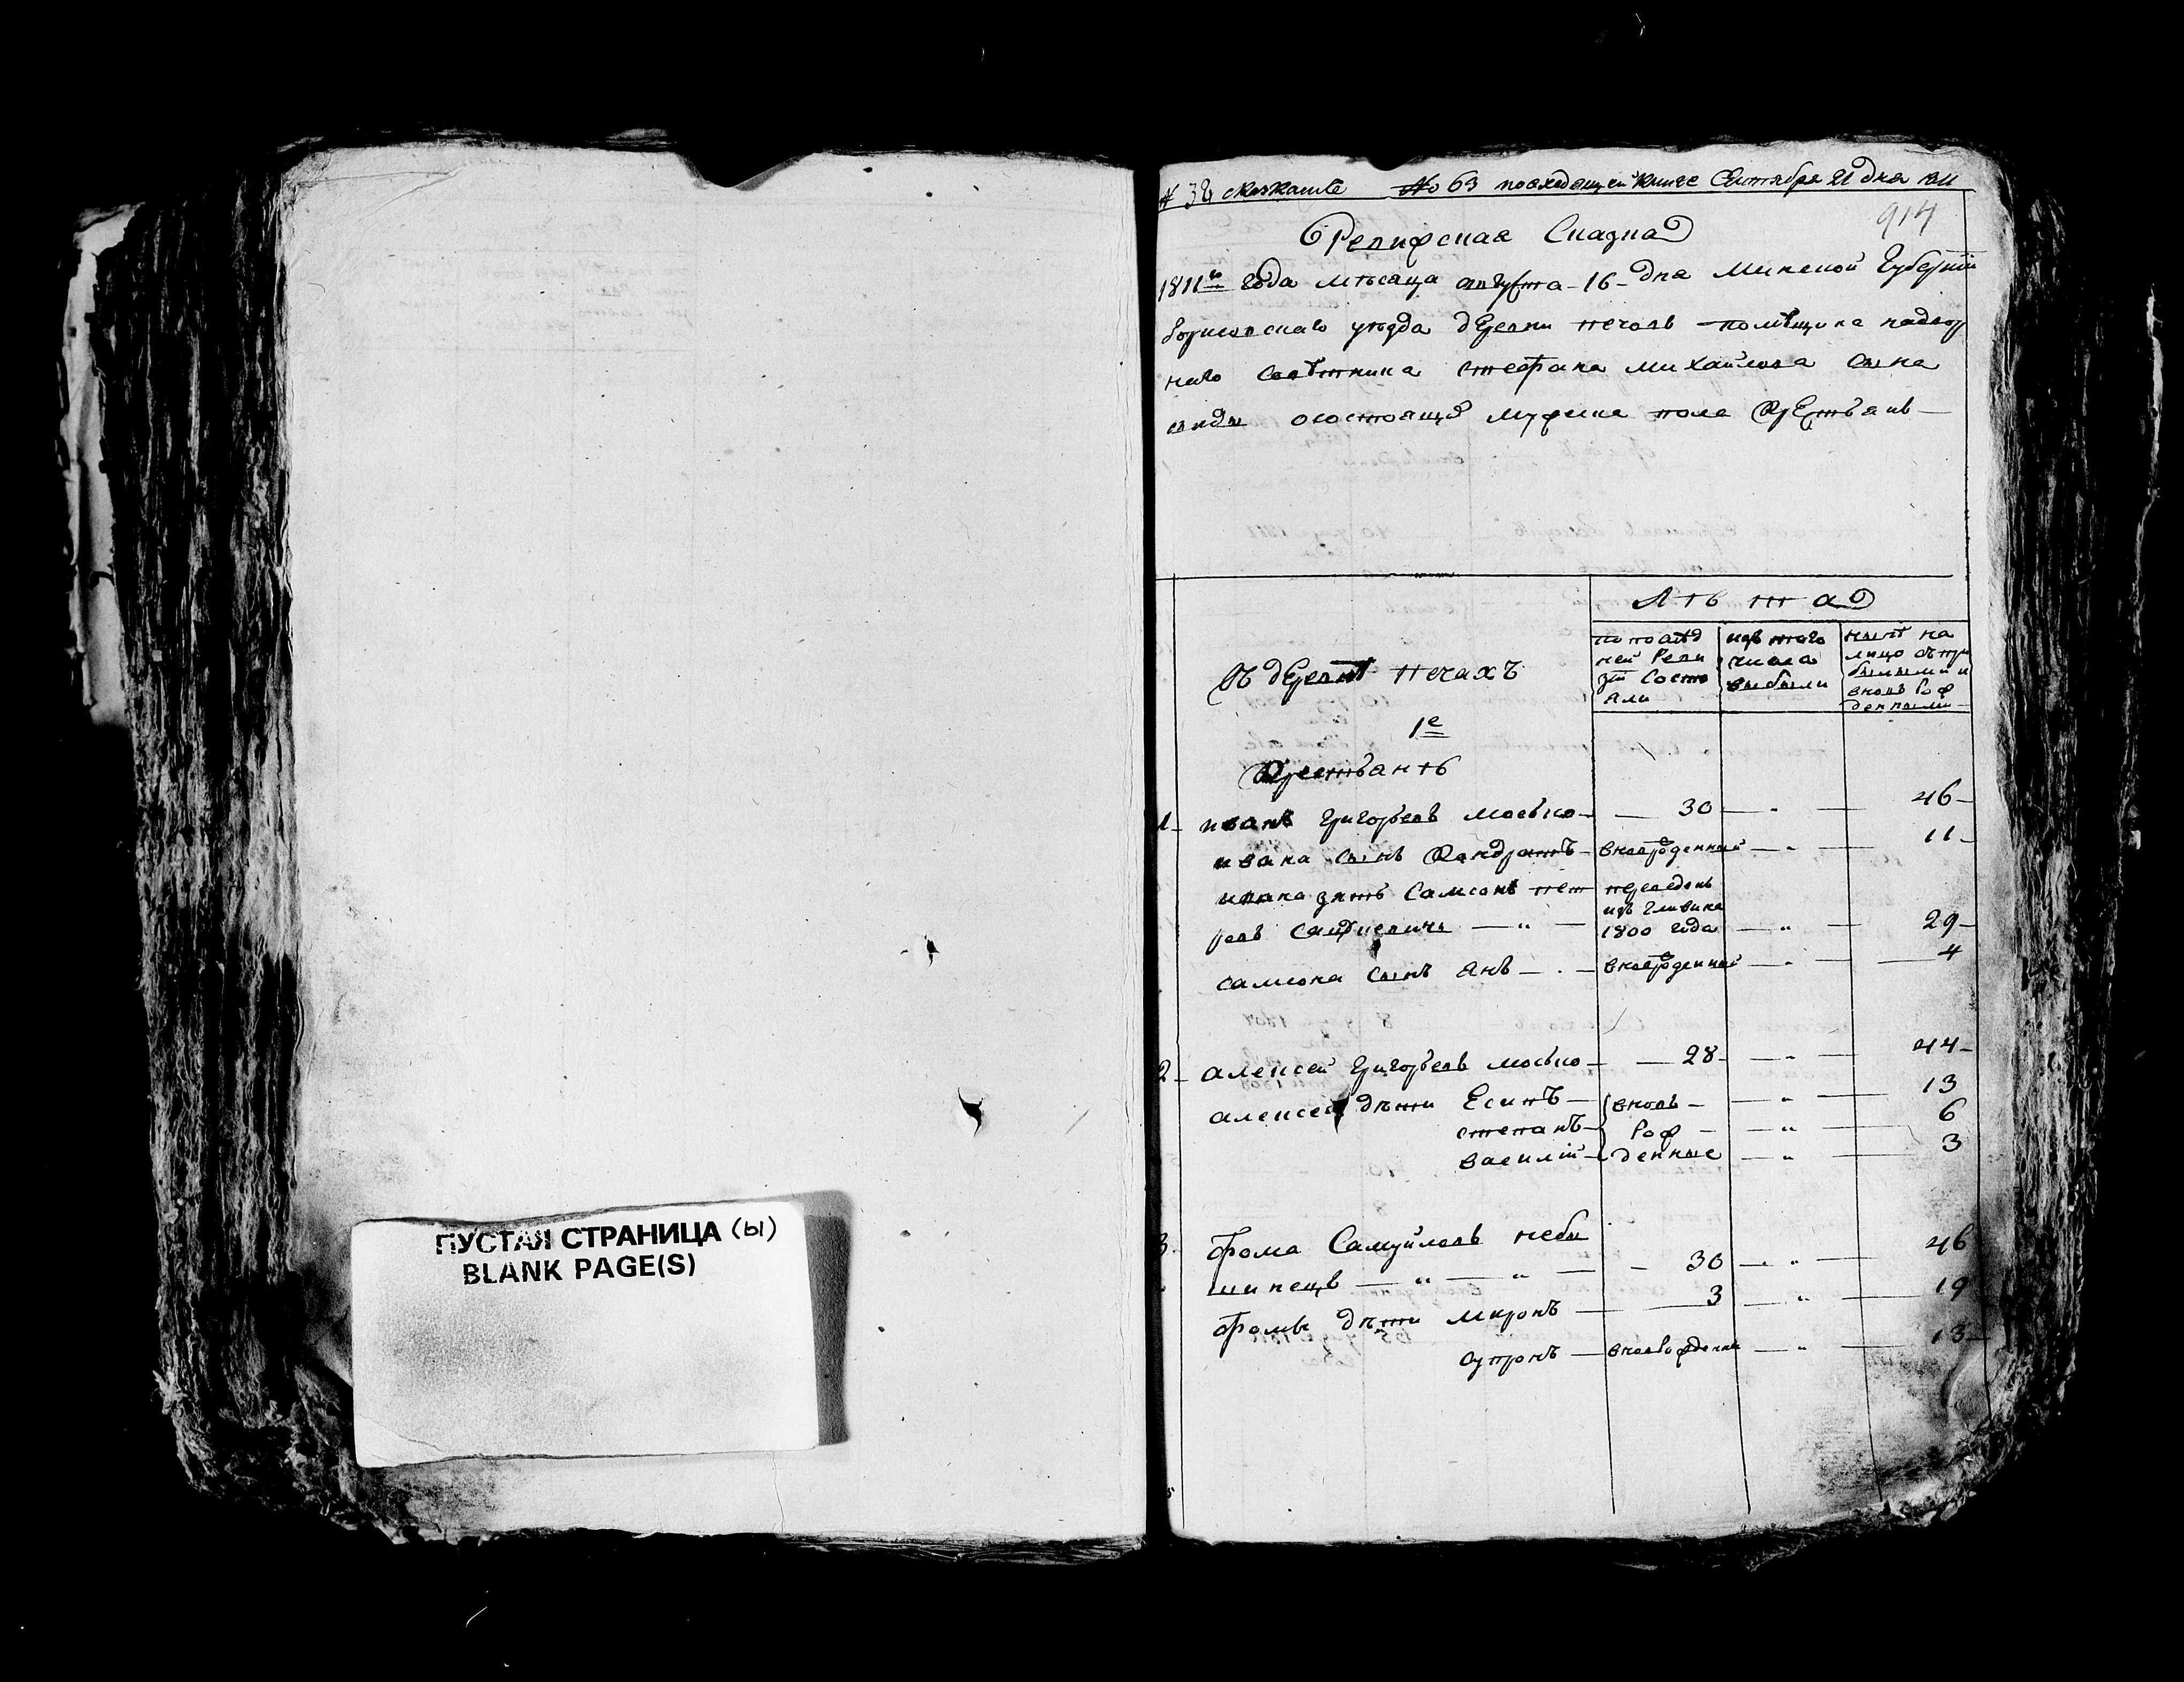 ПУСТАЯ СТРАНИЦА (ы)
BLANK PAGE(S)
№ 63 по входящей книге Сентября 21 дня 1811
914
Ревизская Сказка
1811го года месяца августа 16 дня Минской Губернии
Борисовскаго уезда деревни Печовъ помещика надвор
наго Советника Стефана Михайлова Сына
о состоящихъ мужеска пола Крестьянъ
Лѣта
Въ деревнѣ Печахъ
по послѣд
ней Реви
зіи Состо
яли
изъ того
числа
выбыли
нынѣ на
лицо съ при
былыми и
вновь рож
денными
1е
Крестьянѣ
1 иванъ Григорьевъ Мосько 30 46
ивана Сынъ Кондратъ вноврожденный 11
ивана зять Самсонъ пет переведенъ
изъ Гливина
ровъ 1800 года 29
самсона Сынъ Янъ вноврожденный 4
2 алексей Григорьевъ Мосько 28 44
алексея дѣти Есипъ вновь 13
степанъ Рож 6
василій денные 3
3 Фома Самуйловъ небы
шинецъ 30 46
Фомы дѣти Миронъ 3 19
Супронъ вноврожденный 13